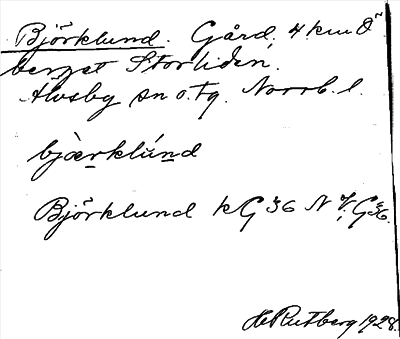 Björklund. Gård, 4 km Ö
berget Storliden.
Älvsby sn o. tg. Norrb. l.
bjærklund
Björklund kG 36 N V. G36.
H. Rutberg 1928.